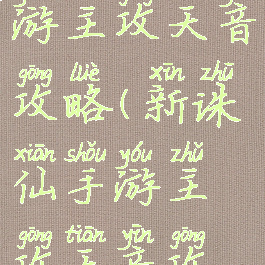 游主攻天音
gōng lüè xīn zhū
攻略(新诛
xiān shǒu yóu zhǔ
仙手游主
gōng tiān yīn gōng
攻天音攻